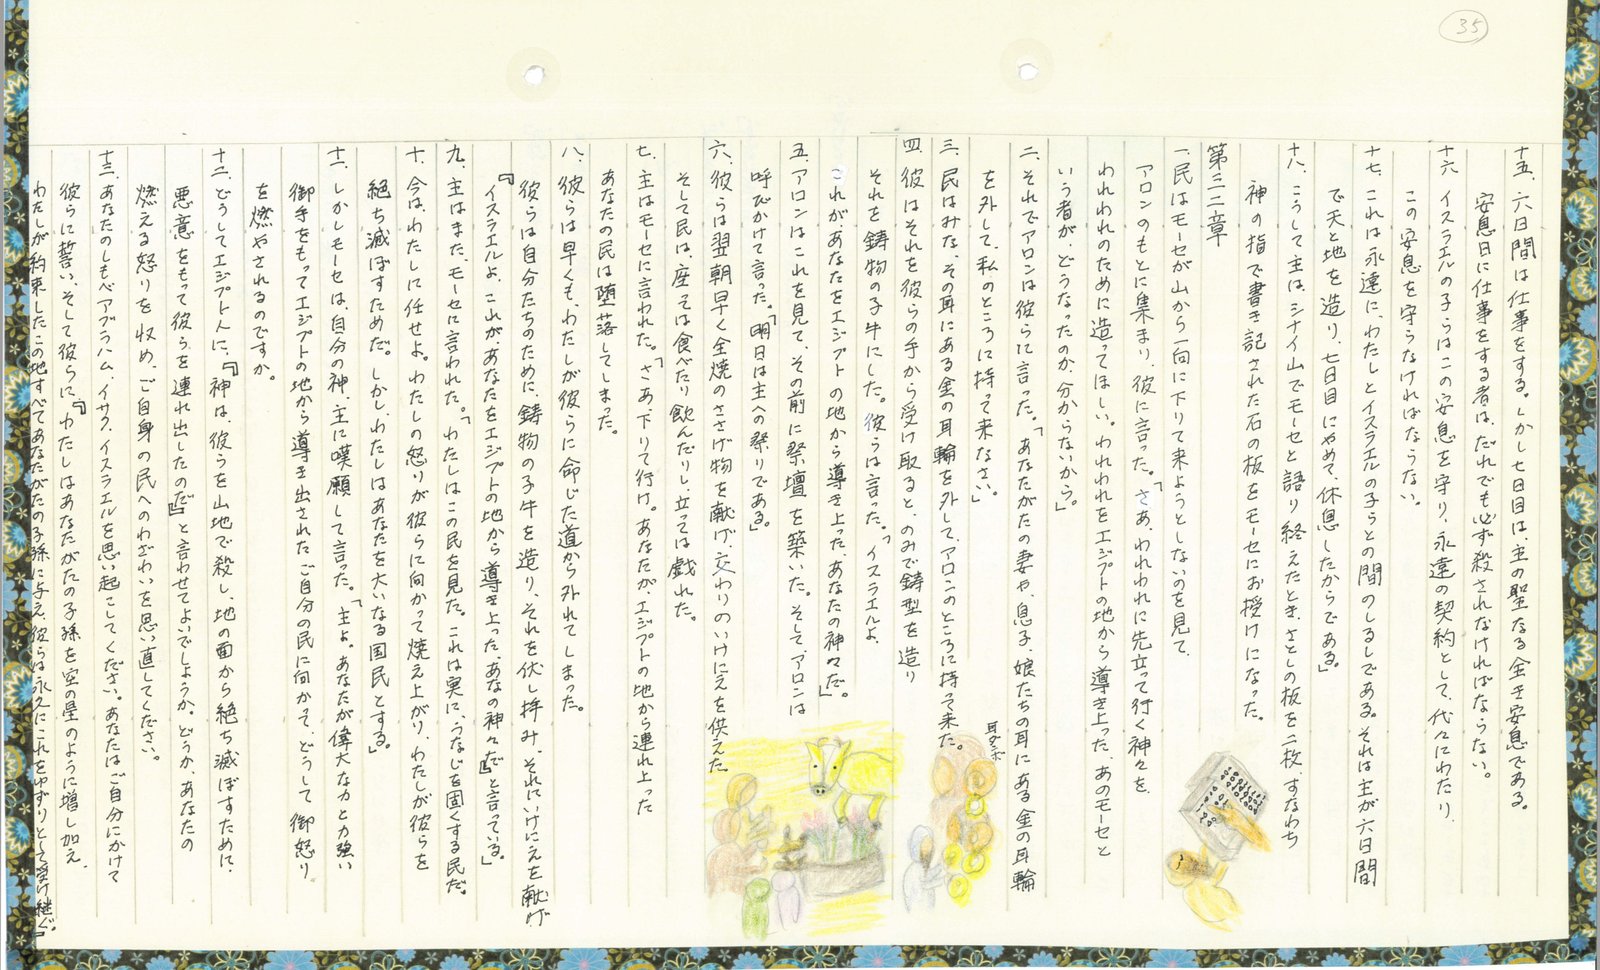 35
十五、六日間は仕事をする。しかし七日目は、主の聖なる全き安息である。
安息日に仕事をする者は、だれでも必ず殺されなければならない。
十六、イスラエルの子らはこの安息を守り、永遠の契約として、代々にわたり、
この安息を守らなければならない。
十七、これは永遠に、わたしとイスラエルの子らとの間のしるしである。それは主が六日間
で天と地を造り、七日目にやめて、休息したからである。」
十八、こうして主は、シナイ山でモーセと語り終えたとき、さとしの板を二枚、すなわち
神の指で書き記された石の板をモーセにお授けになった。
第三二章
一、民はモーセが山から一向に下りて来ようとしないのを見て、
アロンのもとに集まり、彼に言った。「さあ、われわれに先立って行く神々を、
われわれのために造ってほしい。われわれをエジプトの地から導き上った、あのモーセと
いう者が、どうなったのか、分からないから。」
二、それでアロンは彼らに言った。「あなたがたの妻や、息子、娘たちの耳にある金の耳輪
を外して、私のところに持って来なさい。」
三、民はみな、その耳にある金の耳輪を外して、アロンのところに持って来た。
耳タンボ
四、彼はそれを彼らの手から受け取ると、のみで鋳型を造り
それを鋳物の子牛にした。彼らは言った。「イスラエルよ、
これが、あなたをエジプトの地から導き上った、あなたの神々だ。」
五、アロンはこれを見て、その前に祭壇を築いた。そして、アロンは
呼びかけて言った。「明日は主への祭りである。」
六、彼らは翌朝早く全焼のささげ物を献げ、交わりのいけにえを供えた。
そして民は、座っては食べたり飲んだりし、立っては戯れた。
七、主はモーセに言われた。「さあ、下りて行け。あなたが、エジプトの地から連れ上った
あなたの民は堕落してしまった。
八、彼らは早くも、わたしが彼らに命じた道から外れてしまった。
彼らは自分たちのために、鋳物の子牛を造り、それを伏し拝み、それにいけにえを献げ、
『イスラエルよ、これが、あなたをエジプトの地から導き上った、あなの神々だ』と言っている。」
九、主はまた、モーセに言われた。「わたしはこの民を見た。これは実に、うなじを固くする民だ。
十、今は、わたしに任せよ。わたしの怒りが彼らに向かって燃え上がり、わたしが彼らを
絶ち滅ぼすためだ。しかし、わたしはあなたを大いなる国民とする。」
十一、しかしモーセは、自分の神、主に嘆願して言った。「主よ。あなたが偉大な力と力強い
御手をもってエジプトの地から導き出されたご自分の民に向かって、どうして御怒り
を燃やされるのですか。
十二、どうしてエジプト人に、『神は、彼らを山地で殺し、地の面から絶ち滅ぼすために、
悪意をもって彼らを連れ出したのだ』と言わせてよいでしょうか。どうか、あなたの
燃える怒りを収め、ご自身の民へのわざわいを思い直してください。
十三、あなたのしもべアブラハム、イサク、イスラエルを思い起こしてください。あなたはご自分にかけて
彼らに誓い、そして彼らに、『わたしはあなたがたの子孫を空の星のように増し加え、
わたしが約束したこの地すべてあなたがたの子孫に与え、彼らは永久にこれをゆずりとして受け継ぐ』